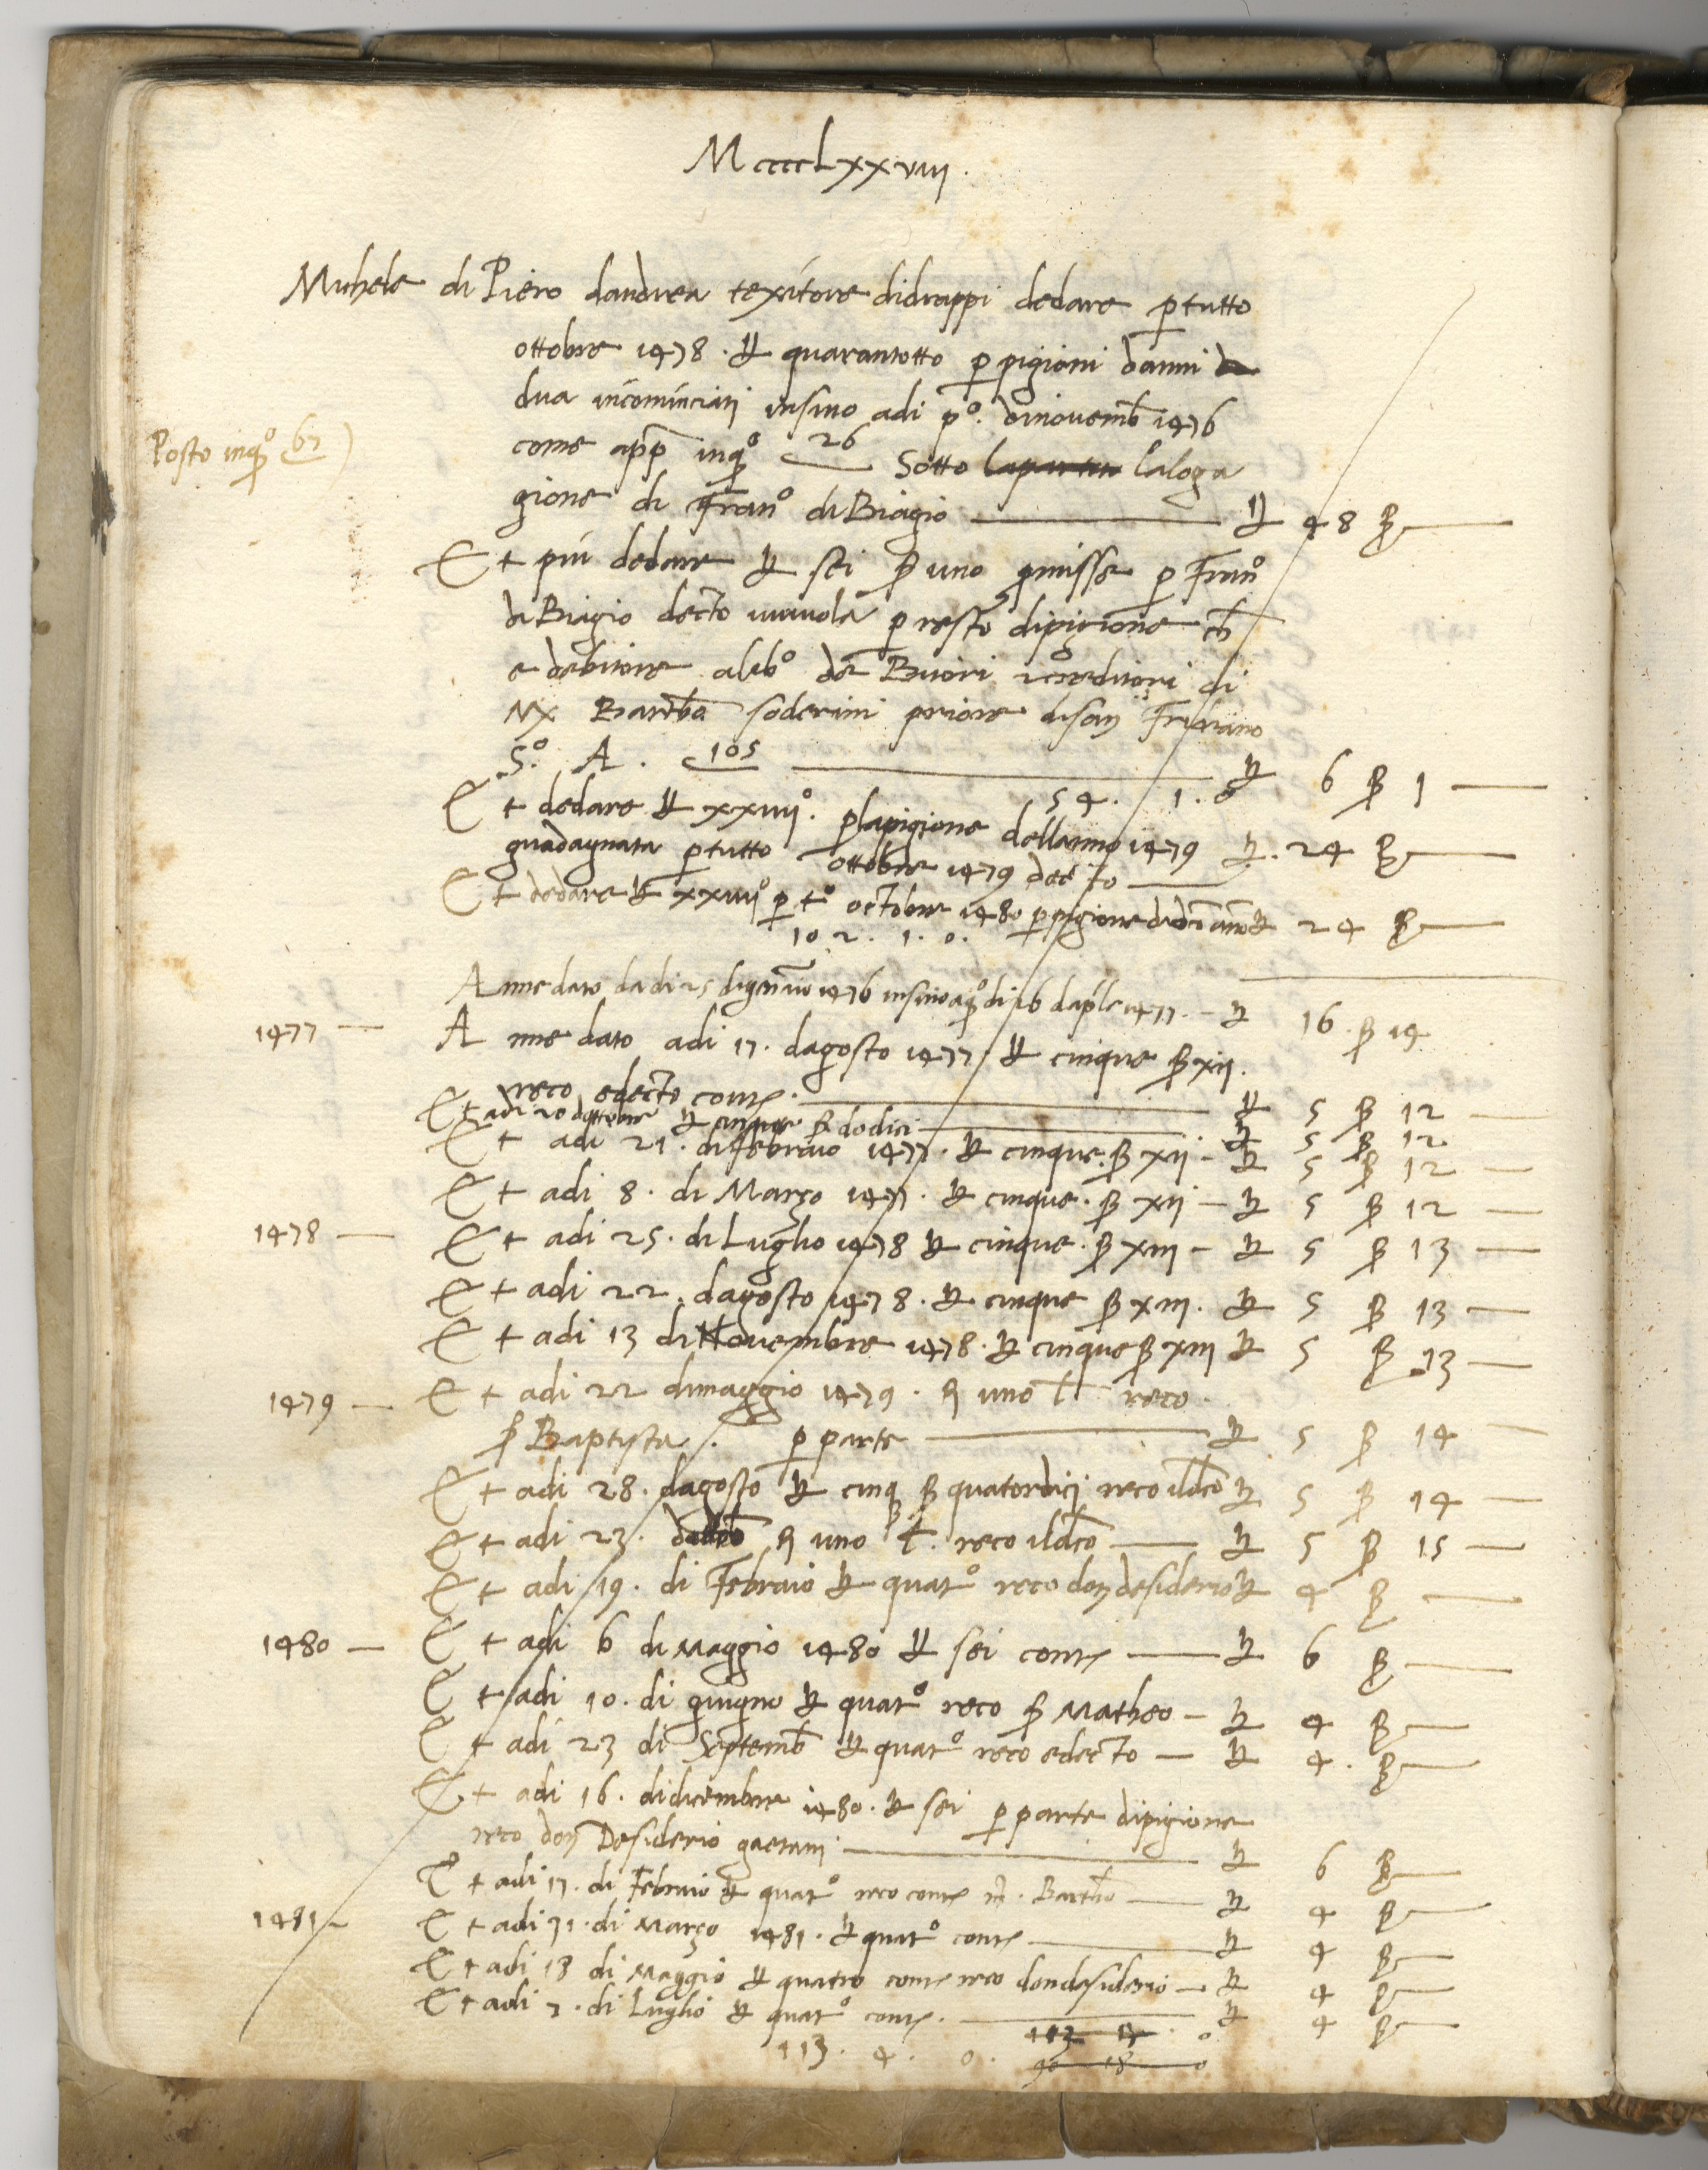 MccccLxxviij.
Michele di Piero dandrea texitore didrappi dedare p tutto
ottobre 1478 . ₶ quarantotto p pigioni danni
dua incominciati insino adi p°. dinovemb 1476
Posto inq° 67
come app inq° 26 Sotto laparten laloga
gione di Fran° di Biagio ₶ 48 ß
Et piu dedare ₶ sei ß uno pmisse p Fran°
di Biagio decto p resto dipigione ch
e debitore alib° de creditori di
Mx Bartba soderini priore disan Friano
S°. A . 105 ₶ 6 ß 1
54 . 1 . 0
Et dedare ₶ xxiiij°. p lapigione dellanno 1479 ₶ . 24 ß
guadagnata p tutto ottobre 1479 decto
Et dedare ₶ xxiiij° p t° octobre 1480 p pigione dedco anno ₶ 24 ß
102 . 1 . 0 .
Anne dato da di 25 digennaio 1476 insino aq° di 26 daple 1477 . ₶ 16 . ß 14
1477 Anne dato adi 17 . dagosto 1477 ₶ cinque ß xij .
reco edecto cont . ₶ 5 ß 12
Et adi 20 dottobre ₶ cinque ß dodici ₶ 5 ß 12
Et adi 21 . di febraio 1477 . ₶ cinque . ß xij - ₶ 5 ß 12
Et adi 8 . di Março 1477 . ₶ cinque . ß xij - ₶ 5 ß 12
1478 Et adi 25 . di Luglio 1478 ₶ cinque . ß xiij - ₶ 5 ß 13
Et adi 22 . dagosto 1478 . ₶ cinque ß xiij . ₶ 5 ß 13
Et adi 13 di Novembre 1478 . ₶ cinque ß xiij ₶ 5 ß 13
1479 Et adi 22 dimaggio 1479 . uno reco .
Baptista . p parte ₶ 5 ß 14
Et adi 28 . dagosto ₶ cinq ß quatordicj reco ildco ₶ 5 ß 14
Et adi 23 . uno . reco ildco ₶ 5 ß 15
Et adi 19 . di Febraio ₶ quat° reco don desiderio ₶ 4 ß
1480 Et adi 6 di Maggio 1480 ₶ sei cont ₶ 6 ß
Et adi 10 . di giugno ₶ quat° reco Matheo - ₶ 4 ß
Et adi 23 di Septemb ₶ quat° reco edecto ₶ 4 . ß
Et adi 16 . didicembre 1480 . ₶ sei p parte dipigione
reco don Desiderio gaetani ₶ 6 ß
Et adi 17 . di Febraio ₶ quat° reco cont . Bartho ₶ 4 ß
1481 Et adi 31 . di Março 1481 . ₶ quat° cont ₶ 4 ß
Et adi 18 di Maggio ₶ quatro cont reco don desiderio ₶ 4 ß
Et adi 7 . di Luglio ₶ quat° cont . ₶ 4 ß
113 . 4 . 0 .